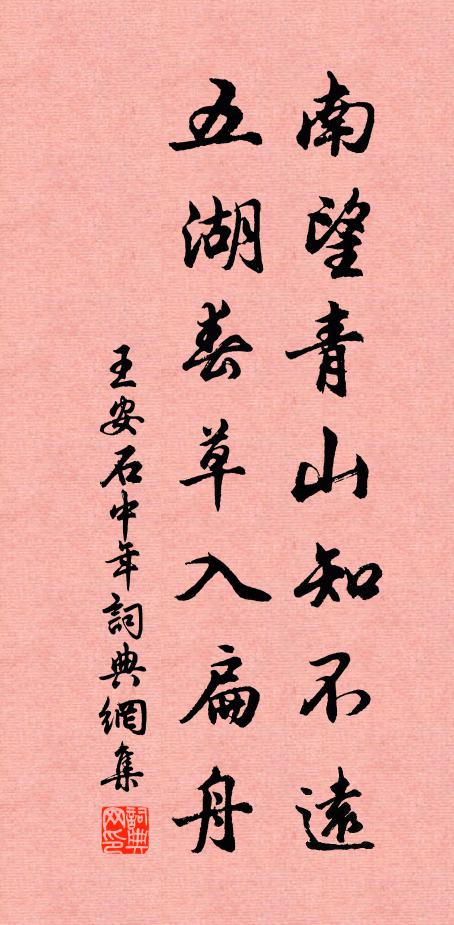 南望青山知不遠
五湖春草入扁舟
王安石中年詞典網集
詞典網印